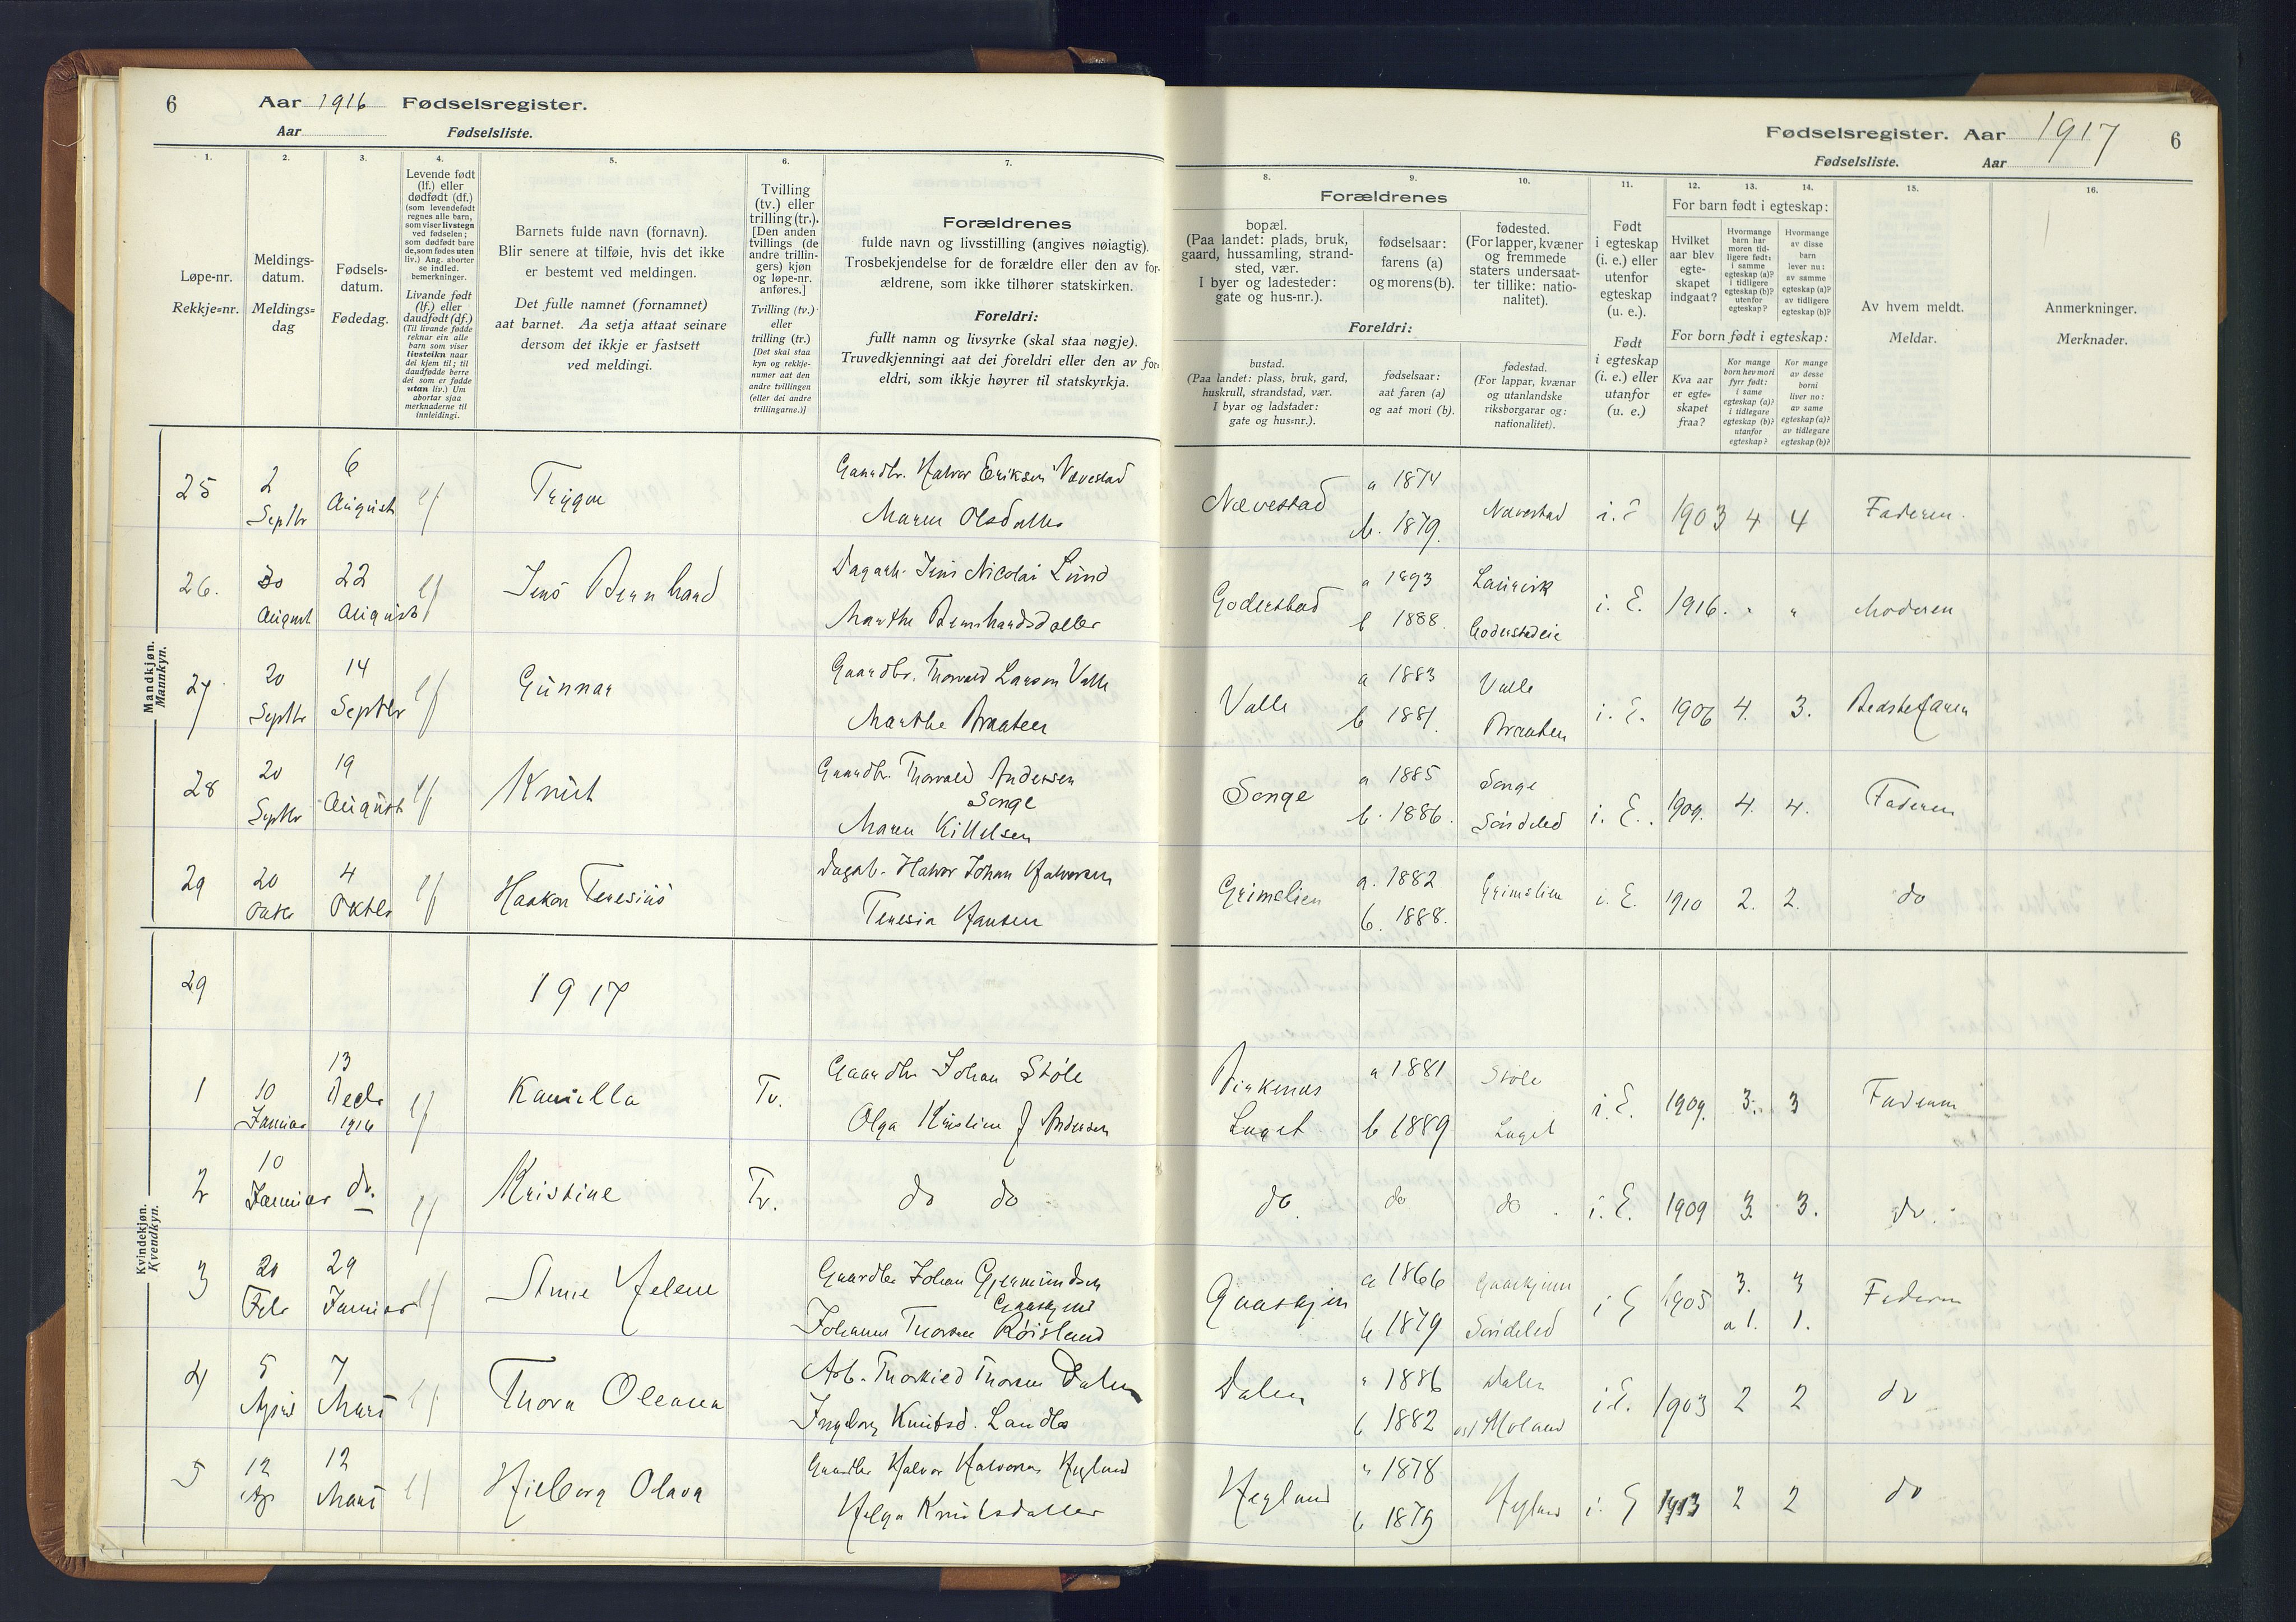 6 Aar 1916 Fødselsregister.
Aar Fødselsliste.
1. 2. 3. 4. 5. 6. 7.
Løpe-nr.
Rekkje=nr.
Meldings-
datum.
Meldings=
dag
Fødsels-
datum.
Fødedag.
Levende født
(lf.) eller
dødfødt (df.)
(som levendefødt
regnes alle barn,
som viser livstegn
ved fødselen;
som dødfødt bare
de, som fødes uten
liv.) Ang. aborter
se indled.
bemerkninger.
Livande født
(lf.) eller
daudfødt (df.)
(Til livande fødde
reknar ein alle
barn som viser
livsteikn naar
dei kjem til; til
daudfødde berre
dei som er fødde
utan liv.) Um
abortar sjaa
merknaderne til
innleidingi.
Barnets fulde navn (fornavn).
Blir senere at tilføie, hvis det ikke
er bestemt ved meldingen.
Det fulle namnet (fornamnet)
aat barnet. Aa setja attaat seinare
dersom det ikkje er fastsett
ved meldingi.
Tvilling
(tv.) eller
trilling (tr.).
[Den anden
tvillings (de
andre trillin-
gers) kjøn
og løpe-nr.
anføres.]
Tvilling (tv.)
eller
trilling (tr.)
[Det skal staa
kyn og rekkje-
numer aat den
andre tvillingen
(eller dei andre
trillingarne.)]
Forældrenes
fulde navn og livsstilling (angives nøiagtig).
Trosbekjendelse for de forældre eller den av for-
ældrene, som ikke tilhører statskirken.
Foreldri:
fullt namn og livsyrke (skal staa nøgje).
Truvedkjenningi aat dei foreldri eller den av for-
eldri, som ikkje høyrer til statskyrkja.
Mandkjøn.
Mannkyn.
25 2 Septbr 6 August lf Trygve Gaardbr. Halvor Eriksen Nævestad
Maren Olsdatter
26. 30 August 22 August lf Jens Bernhard Dagarb. Jens Nicolai Lund
Marthe Bernhardsdatter
27 20 Septbr 14 Septbr lf Gunnar Gaardbr. Thorvald Larsen Valle
Marthe Braaten
28 20 Septbr 19 August lf Knut Gaardbr. Thorvald Andersen
Songe
Maren Kittelsen
29 20 Oktbr 4 Oktbr lf Haakon Teresius Dagarb. Halvor Johan Halvorsen
Teresia Hansen
Kvindekjøn.
Kvendkyn.
29 1917
1 10 Januar 13 Decbr 1916 lf Kamilla Tv. Gaardbr Johan Støle
Olga Kristine J Andersen
2 10 Januar do. lf Kristine Tv. do do
3 20 Febr 29 Januar lf Anne Helene Gaardbr Johan Gjermundsen
Gaaskjenn
Johanne Thorsen Røisland
4 5 April 7 Mars lf Thora Oleana Arb. Thorkied Thorsen Dalen
Ingeborg Knutsd. Landbø
5 12 Ap 12 Mars lf Hjelborg Olava Gaardbr Halvor Halvorsen Hegland
Helga Knutsdatter
Fødselsregister. Aar 1917 6
Fødselsliste. Aar
8. 9. 10. 11. 12. 13. 14. 15. 16.
Forældrenes
bopæl.
(Paa landet: plads, bruk,
gaard, hussamling, strand-
sted, vær.
I byer og ladesteder:
gate og hus-nr.).
fødselsaar:
farens (a)
og morens (b).
fødested.
(For lapper, kvæner
og fremmede
staters undersaat-
ter tillike: natio-
nalitet).
Foreldri:
bustad.
(Paa landet: plass, bruk, gard,
huskrull, strandstad, vær.
I byar og ladstader:
gate og hus=nr.).
fødselsaar:
aat faren (a)
og aat mori (b).
fødestad.
(For lappar, kvænar
og utanlandske
riksborgarar og:
nationalitet).
Født
i egteskap
(i. e.) eller
utenfor
egteskap
(u. e.).
Født
i egteskap
(i. e.) eller
utanfor
(u. e.)
For barn født i egteskap:
Hvilket
aar blev
egte-
skapet
indgaat?
Hvormange
barn har
moren tid-
ligere født:
i samme
egteskap (a)?
i tidligere
egteskap (b)?
utenfor
egteskap?
Hvormange
av disse
barn
lever nu:
av samme
egteskap (a)?
av tidligere
egteskap (b)?
For born født i egteskap:
Kva aar
er egte=
skapet
fraa?
Kor mange
born hev mori
fyrr født:
i same
egteskap (a)?
i tidlegare
egteskap (b)?
utanfor
egteskap?
Kor mange
av desse
borni
liver no:
av same
egteskap (a)?
av tidlegare
egteskap (b)?
Av hvem meldt.
Meldar.
Anmerkninger.
Merknader.
Nævestad a 1874 b. 1879. Nævestad i. E 1903 4 4 Faderen.
Goderstad a 1893 b 1888. Laurvik Goderstadeie i. E. 1916. " " Moderen
Valle a 1883 b 1881. Valle Braaten i. E. 1906 4. 3. Bedstefaren
Songe a 1885 b. 1886. Songe Søndeled i. E. 1909. 4. 4. Faderen
Grimelien a. 1882 b. 1888. Grimelien i. E. 1910 2. 2. do
Birkenes Laget a 1881 b 1889 Støle Laget i. E. 1909. 3. 3 Faderen
do. do do. i. E. 1909 3. 3. do.
Gaaskjen a 1866 b 1879 Gaaskjenn Søndeled i E 1905 3. a 1. 3 1. Faderen
Dalen a 1886 b 1882 Dalen øst Moland i E. 1903 2 2 do
Hegland a 1878 b 1879 Hegland i. E 1913 2 2 do